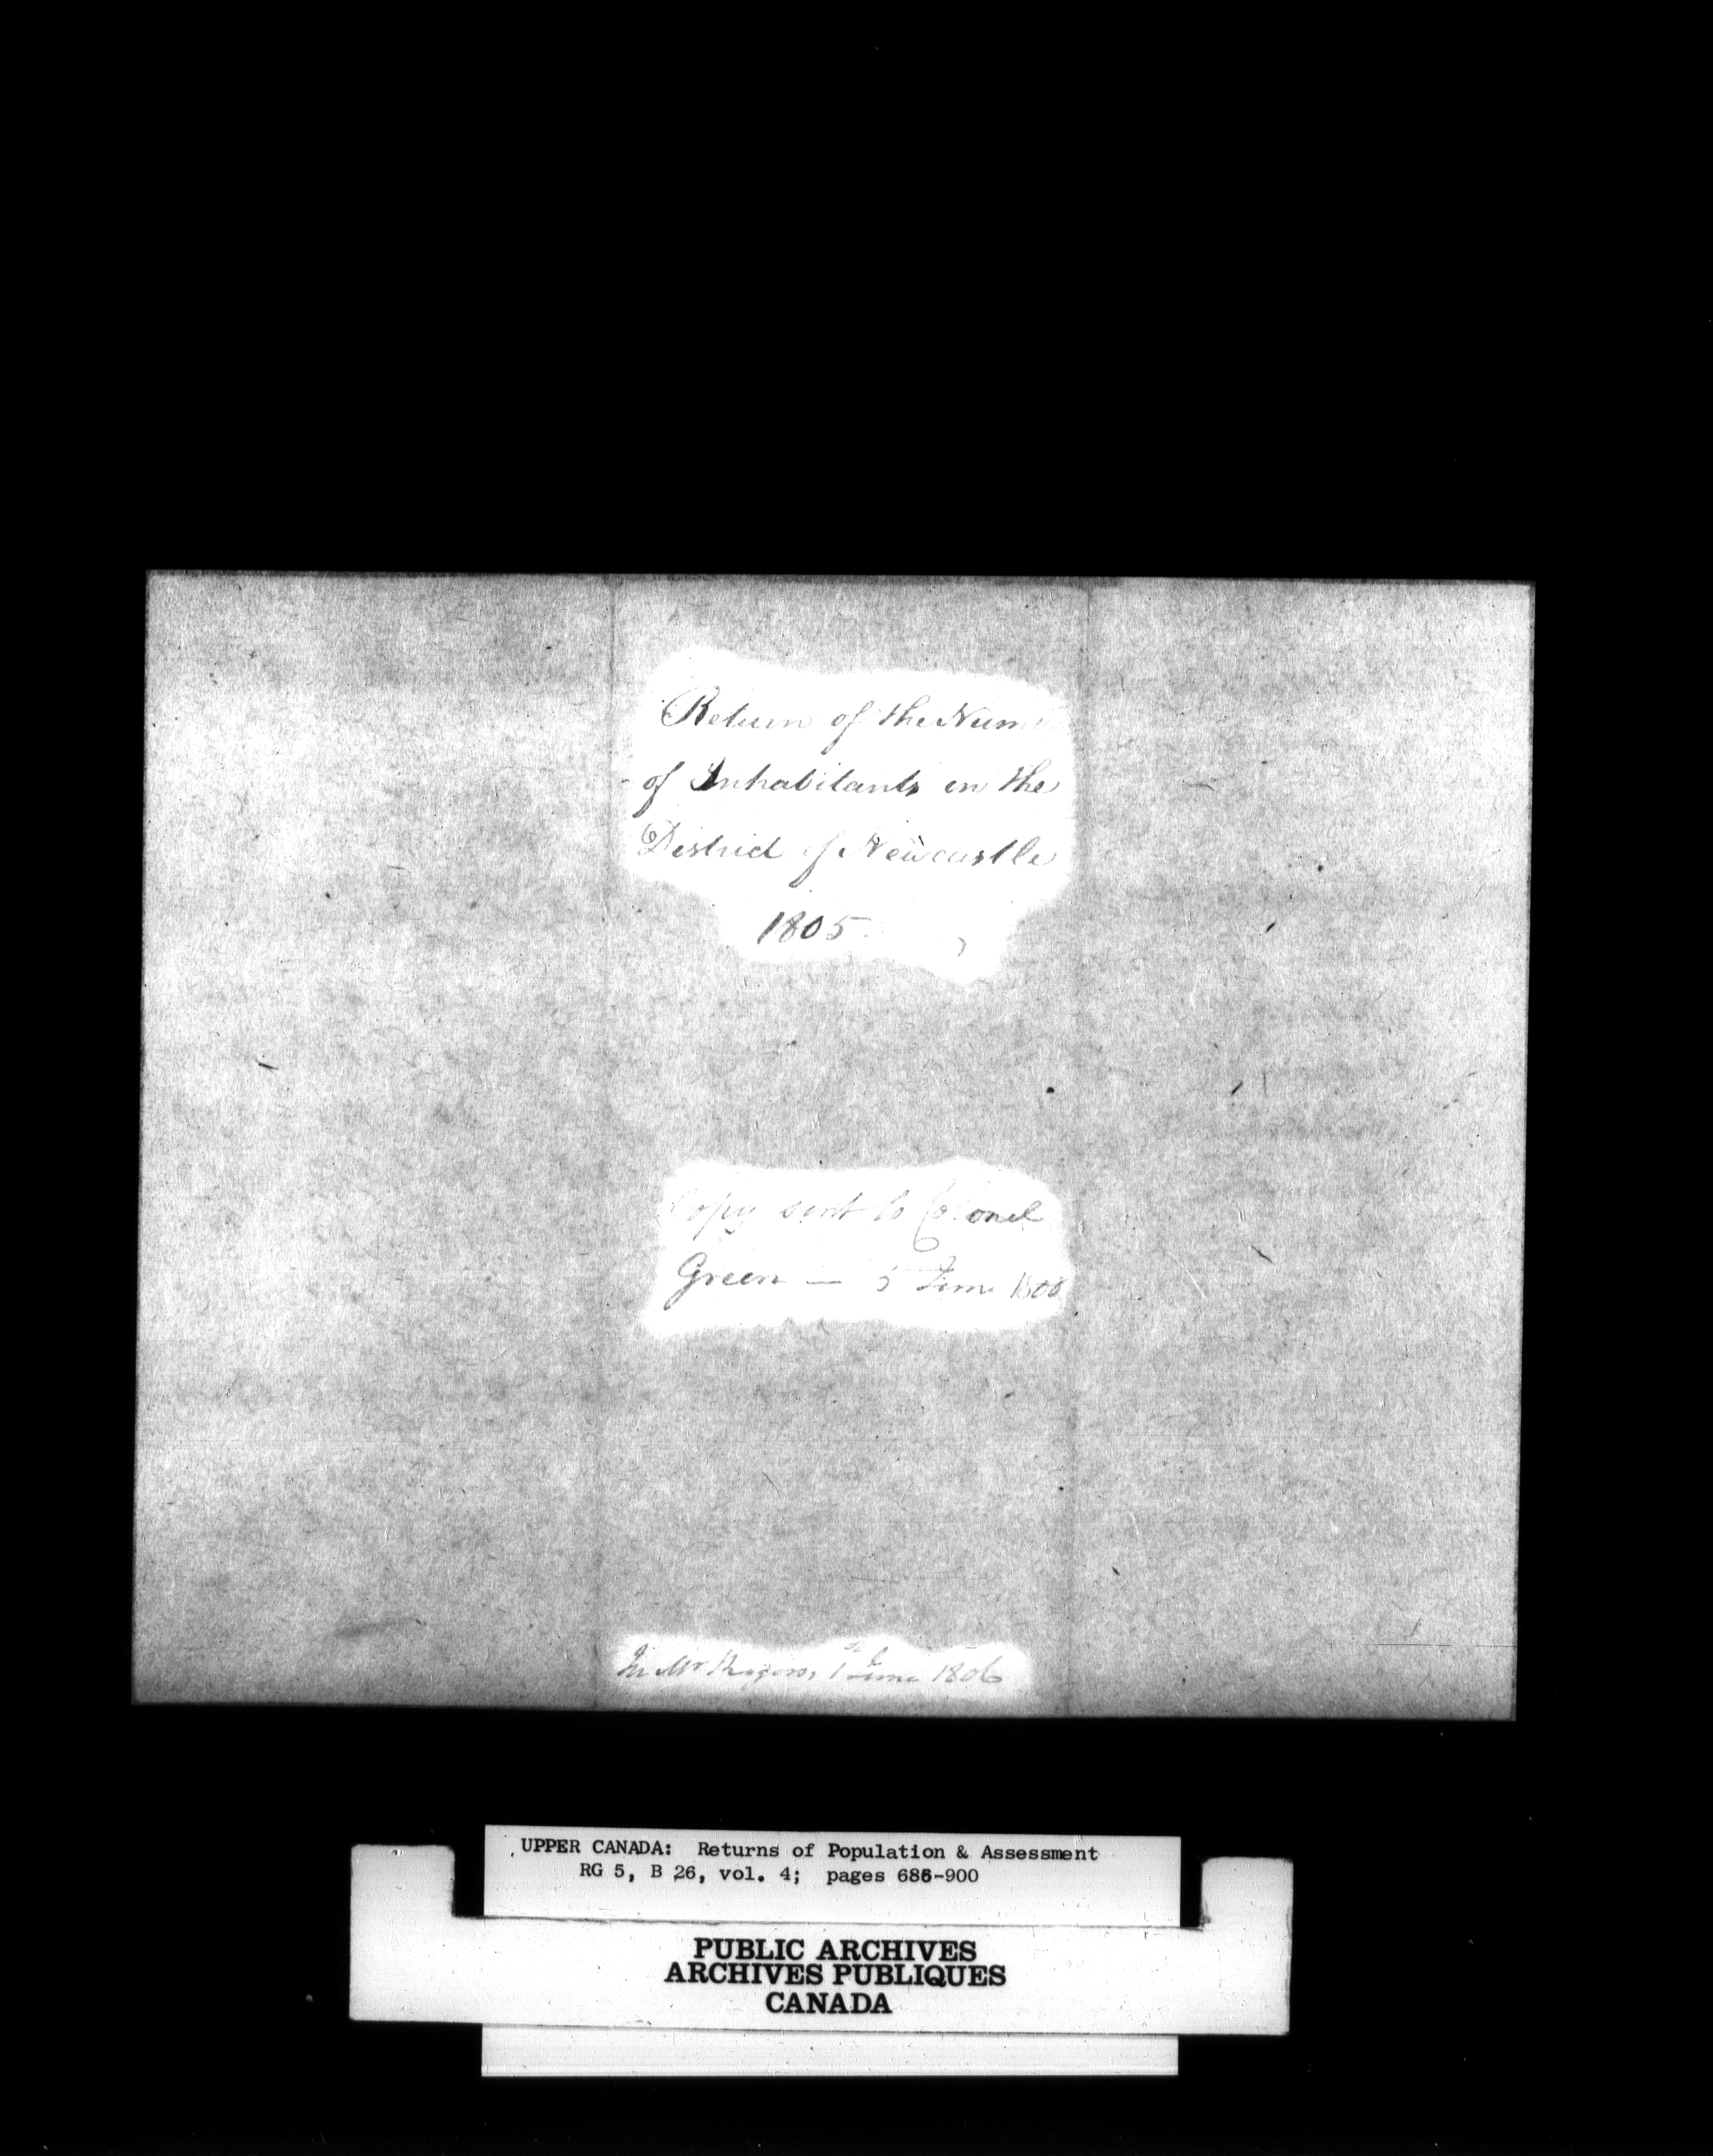 Return of the Num
of Inhabitants in the
District of Newcastle
1805
Copy sent to Colonel
Green — 5 June
In Mr Rogers, 1st June 1806
UPPER CANADA: Returns of Population & Assessment
RG 5, B 26, vol. 4; pages 686-900
PUBLIC ARCHIVES
ARCHIVES PUBLIQUES
CANADA